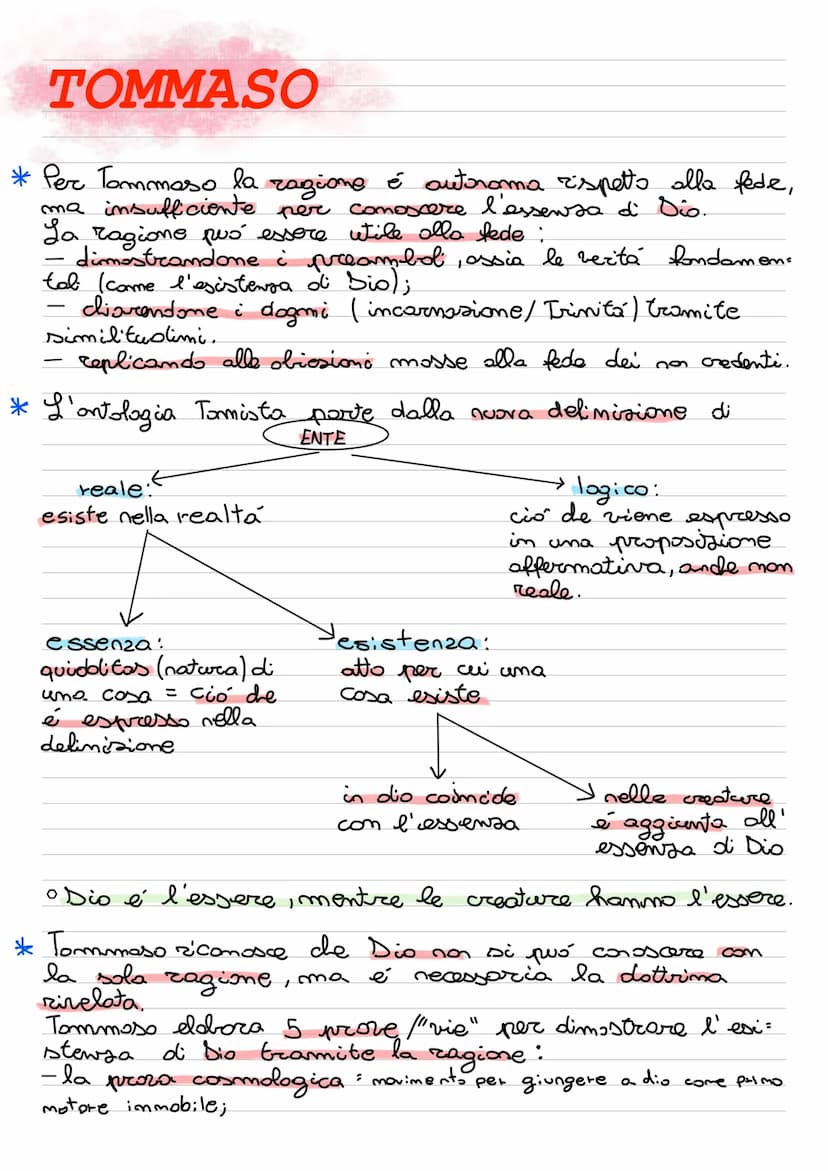 TOMMASO
* Per Tommaso la ragione é autonoma rispetto alla fede,
ma insufficiente per conoscere l'essenza di Dio.
La ragione puó essere utile alla fede:
- dimostrandone i preamboli, ossia le veritá fondamen=
tali (come l'esistenza di Dio);
- chiarendone i dogmi (incarnazione/Trinitá) tramite
similitudini.
- replicando alle obiezioni mosse alla fede dei non credenti.
* L'ontologia Tomista parte dalla nuova definizione di
ENTE
reale:
esiste nella realtá
logico:
ció che viene espresso
in una proposizione
affermativa, anche non
reale.
essenza:
quidditas (natura) di
una cosa = ció che
é espresso nella
definizione
esistenza:
atto per cui una
cosa esiste
in dio coincide
con l'essenza
nelle creature
é aggiunta all'
essenza di Dio
° Dio é l'essere, mentre le creature hanno l'essere.
* Tommaso riconosce che Dio non si puó conoscere con
la sola ragione, ma é necessaria la dottrina
rivelata.
Tommaso elabora 5 prove/"vie" per dimostrare l'esi=
stenza di Dio tramite la ragione:
- la prova cosmologica: movimento per giungere a dio come primo
motore immobile;